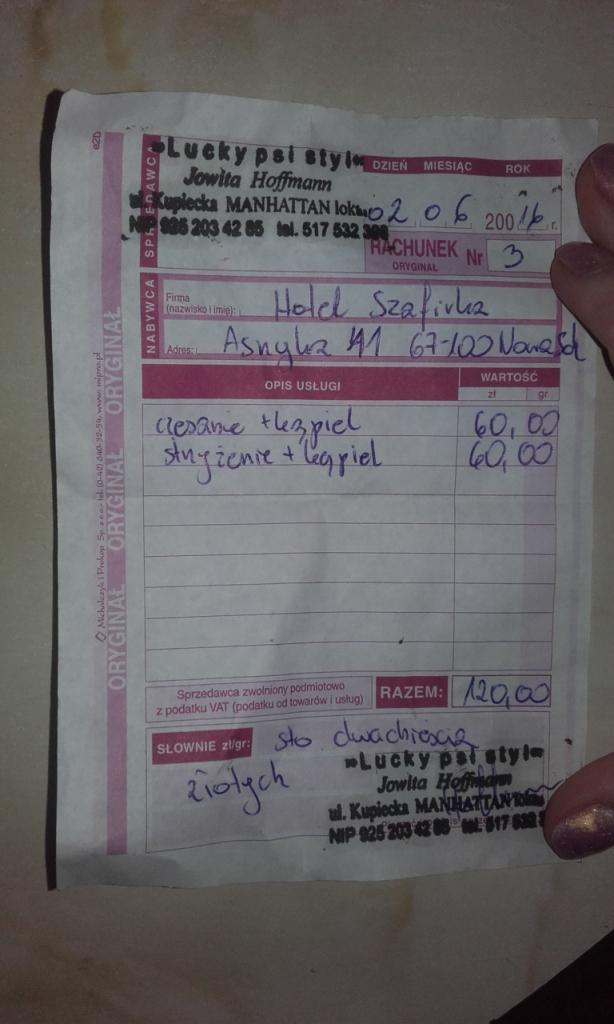 e2b
SPRZEDAWCA
»Lucky psi styl«
Jowita Hoffmann
ul. Kupiecka MANHATTAN lok
NIP 925 203 42 85 tel. 517 532
DZIEŃ MIESIĄC ROK
02 06 20016 r.
RACHUNEK Nr 3
ORYGINAŁ
NABYWCA
Firma
(nazwisko i imię): Hotel Szafirka
Adres: Asnyka 41 67-100 Nowa Sól
OPIS USŁUGI WARTOŚĆ
zł gr
czesanie + kąpiel 60,00
strzyżenie + kąpiel 60,00
Sprzedawca zwolniony podmiotowo
z podatku VAT (podatku od towarów i usług)
RAZEM: 120,00
SŁOWNIE zł/gr: sto dwadzieścia
złotych
»Lucky psi styl«
Jowita Hoffmann
ul. Kupiecka MANHATTAN lok
NIP 925 203 42 85 tel. 517 532
ORYGINAŁ ORYGINAŁ ORYGINAŁ
Michalczyk i Prokop Sp. z o.o. tel. (0-42) 640-32-54, www.mipro.pl